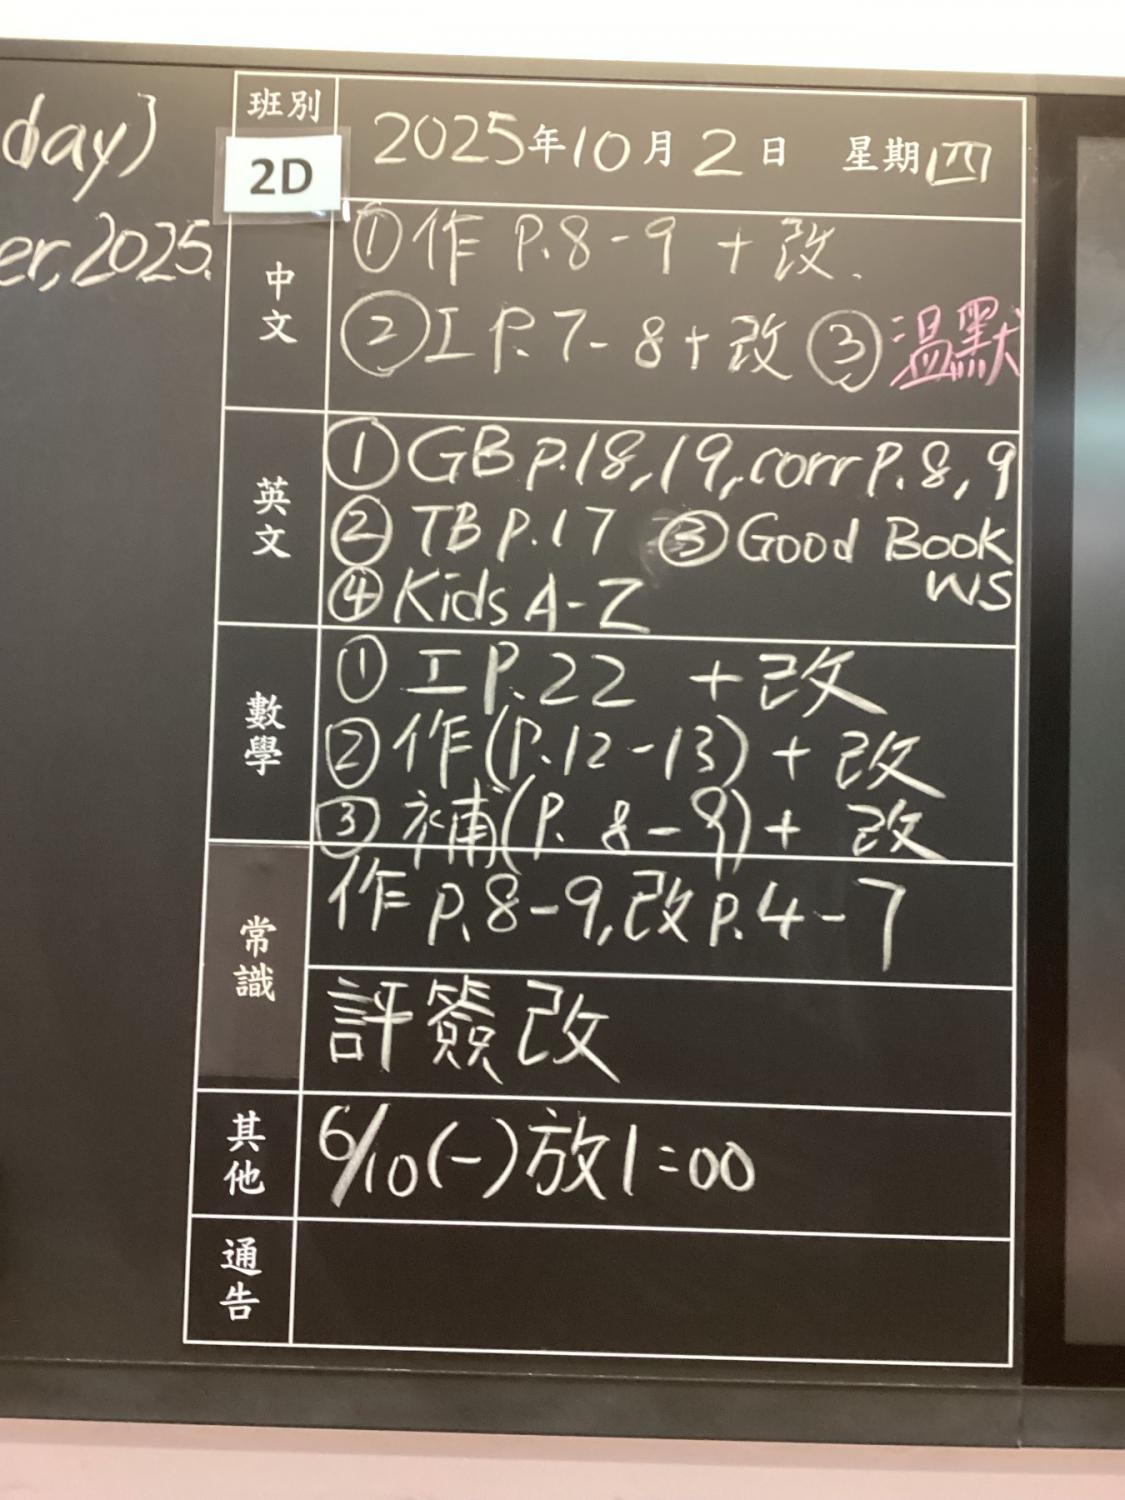 day)
er, 2025.
班別
2D
2025年10月2日 星期四
中文
①作 P.8-9 + 改.
②工 P.7-8+改 ③温默
英文
①GB p.18,19, corr P.8,9
②TB p.17 ③Good Book
WS
④Kids A-Z
數學
①工P.22 +改
②作(P.12-13)+改
③補(P. 8-9)+ 改
常識
作p.8-9,改p.4-7
評簽改
其他
6/10(一)放1:00
通告